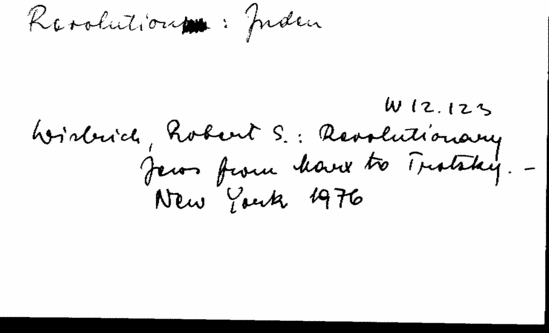 Revolution : Juden
W 12.123
Wistrich, Robert S.: Revolutionary
Jews from Marx to Trotsky. –
New York 1976